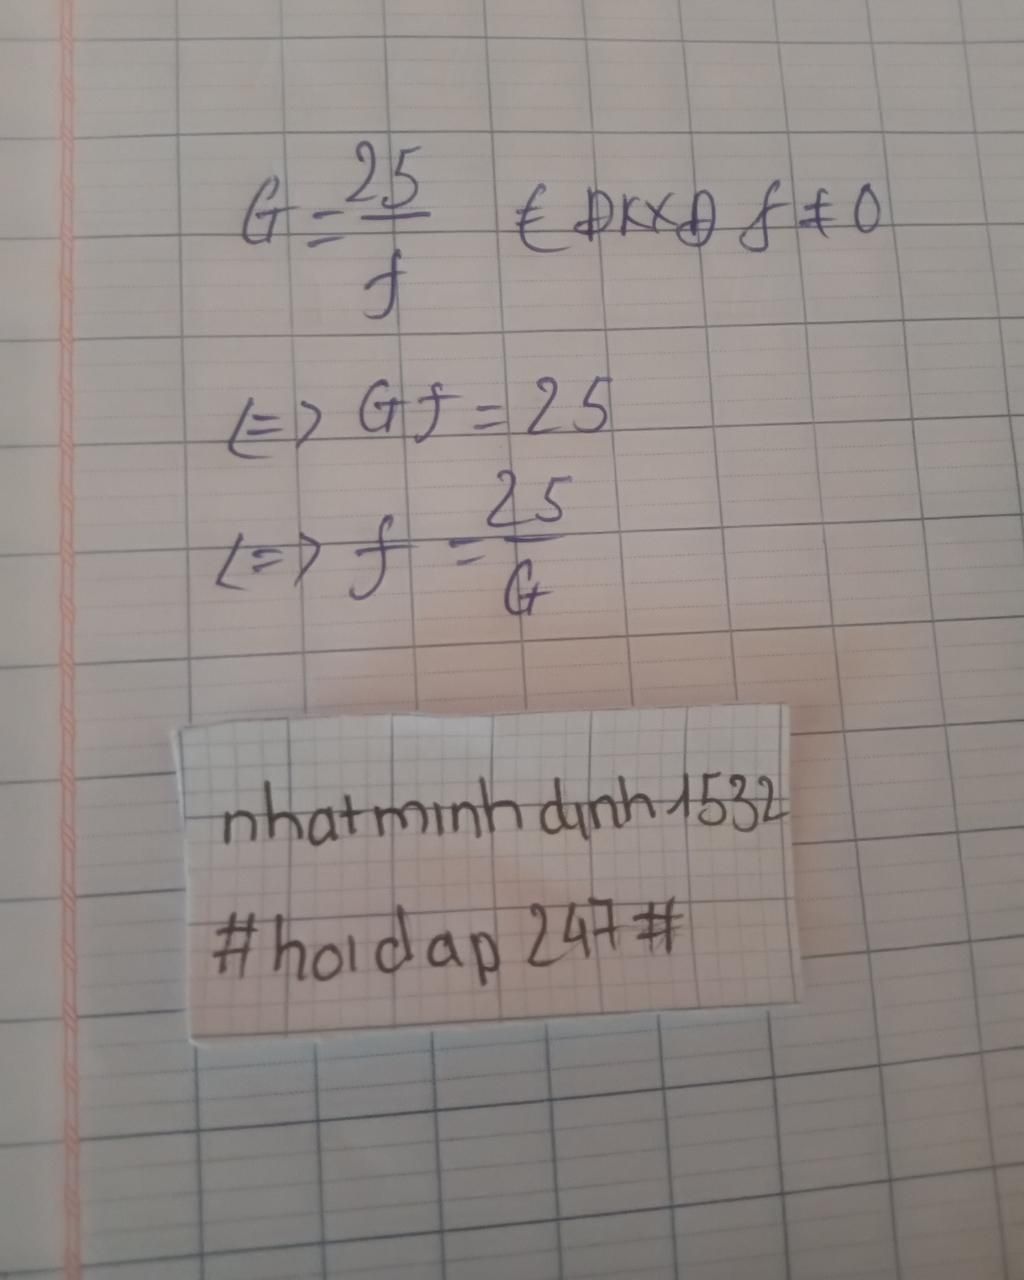 G = 25/f ( ĐKXĐ f ≠ 0
<=> Gf = 25
<=> f = 25/G
nhatminhdinh1532
#hoidap247#